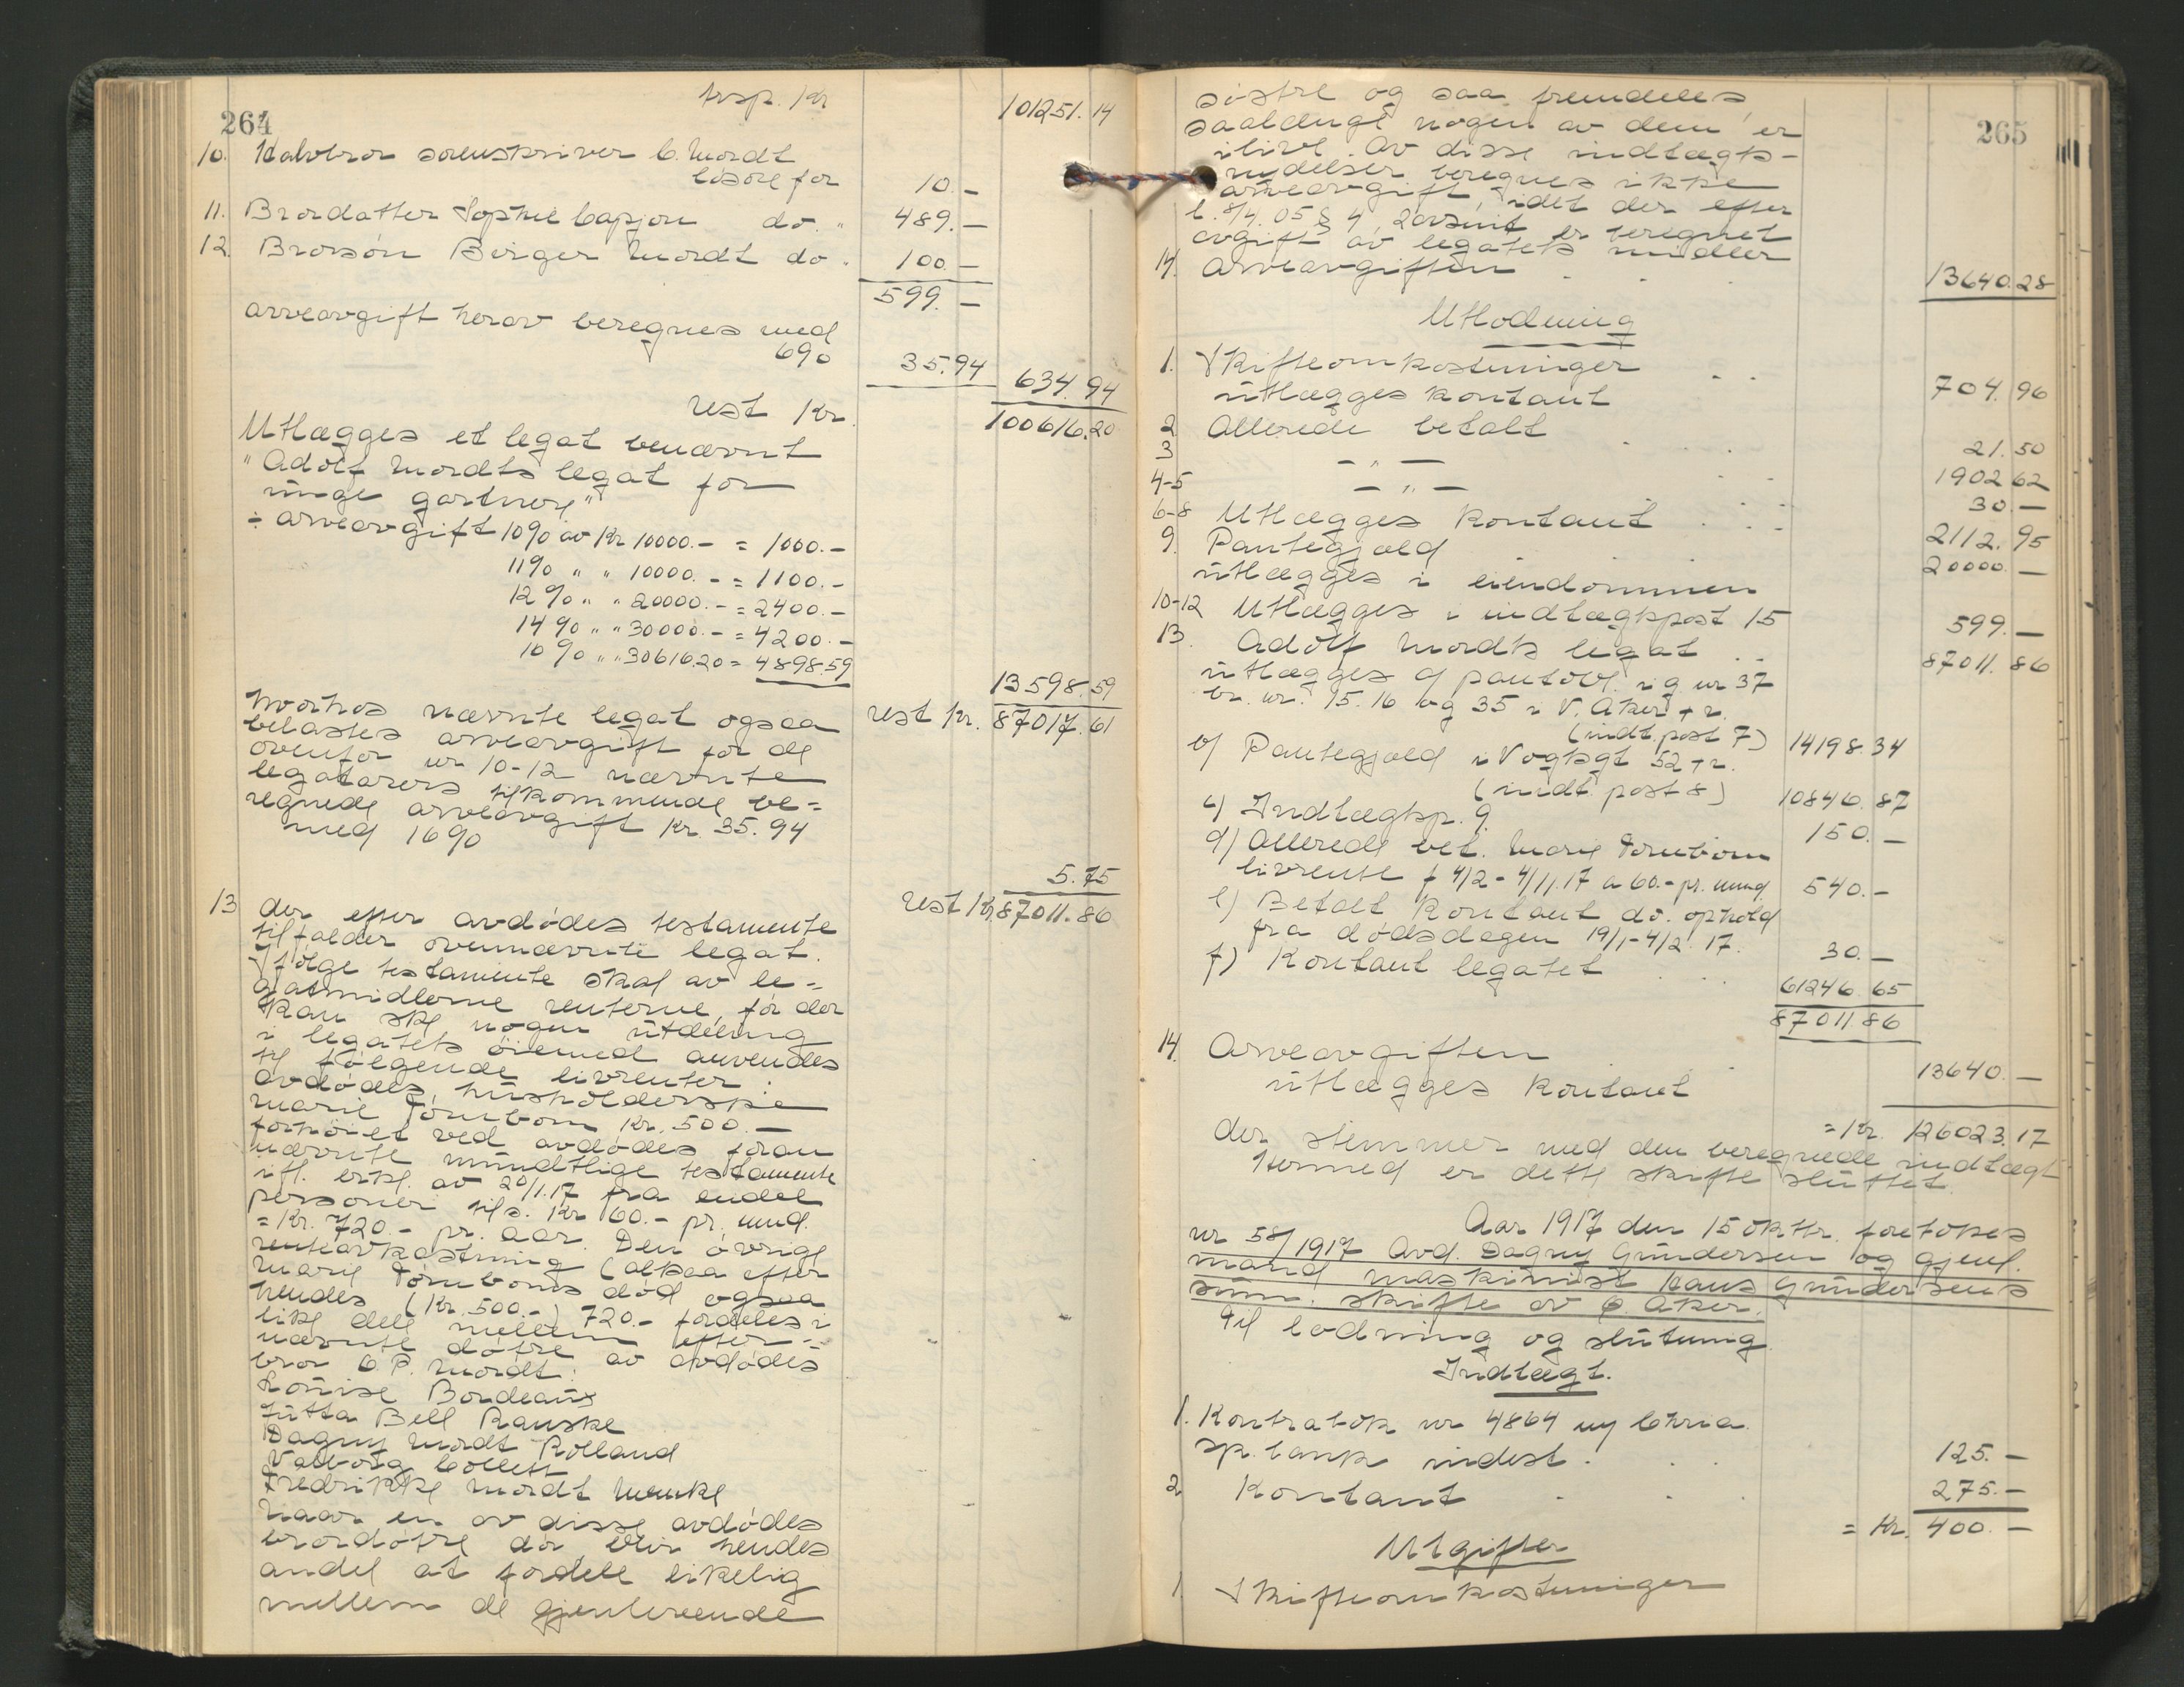 264
trsp. Kr 101251.14
10. Halvbror sorenskriver C. Mordt
løsøre for 10.-
11. Brordatter Sophie Capjon do. " 489.-
12. Brorsøn Birger Mordt do. 100.-
599.-
arveavgift herav beregnes med
6% 35.94 634.94
rest Kr. 100616.20
Utlægges et legat benævnt
"Adolf Mordts legat for
unge gartnere"
÷ arveavgift 10% av Kr 10000.- = 1000.-
11% " " 10000.- = 1100.-
12% " " 20000.- = 2400.-
14% " " 30000.- = 4200.-
16% " " 30616.20 = 4898.59
13598.59
rest Kr. 87017.61
hvorhos nævnte legat ogsaa
belastes arveavgift for de
ovenfor nr 10-12 nævnte
legatarers tilkommende be=
regnede arveavgift Kr. 35.94
med 16% 5.75
rest Kr. 87011.86
13 der efter avdødes testamente
tilfalder ovennævnte legat.
Ifølge testamente skal av le=
gatmidlerne renterne, før der
kan ske nogen utdeling
i legatets øiemed anvendes
til følgende livrenter:
avdødes husholderske
Marie Törnbom Kr. 500.-
forhøiet ved avdødes foran
nævnte mundtlige testamente
ifl. erkl. av 20/1.17 fra endel
personer til s. Kr 60.- pr. mnd.
= Kr. 720.- pr. aar. Den øvrige
renteavkastning (altsaa efter
Marie Törnboms død ogsaa
hendes (Kr. 500.-) 720.- fordeles i
like dele mellem efter=
nævnte døtre av avdødes
bror C. P. Mordt:
Louise Bordeaux
Jutta Bell Ranske
Dagny Mordt Rolland
Valborg Collett
Fredrikke Mordt Mencke
Naar en av disse avdødes
brordøtre dør blir hendes
andel at fordele likelig
mellem de gjenlevende
265
søstre og saa fremdeles
saalænge nogen av dem er
ilive. Av disse indtægts-
nydelser beregnes ikke
arveavgift, idet der efter
l. 8/4.05 § 4, 2 avsnit er beregnet
avgift av legatets midler
14. Arveavgiften 13640.28
Utlodning
1. Skifteomkostninger 704.96
utlægges kontant
2 Allerede betalt 21.50
3 - " - 1902.62
4-5 - " - 30.-
6-8 Utlægges kontant 2112.95
9. Pantegjæld 20000.-
utlægges i eiendommen
10-12 Utlægges i indtægtspost 15 599.-
13. Adolf Mordts legat 87011.86
utlægges a) pantobl. i g. nr 37
br. nr. 15. 16 og 35 i V. Aker + r.
(indt. post 7) 14198.34
b) Pantegjæld i Vogtsgt 52 + r.
(indt. post 8) 10846.87
c) Indtægtsp. 9. 150.-
d) Allerede bet. Marie Törnbom
livrente f 4/2 - 4/11.17 a 60.- pr. mnd 540.-
e) Betalt kontant do. ophold
fra dødsdagen 19/1-4/2.17. 30.-
f) Kontant legatet 61246.65
87011.86
14. Arveavgiften 13640.-
utlægges kontant
= Kr. 126023.17
der stemmer med den beregnede indtægt
Hermed er dette skifte sluttet.
Aar 1917 den 15 oktbr. foretokes
nr 58/1917 Avd. Dagny Gundersen og gjenl.
mand maskinist Hans Gundersens
sam. skifte av Ø. Aker.
Til lodning og slutning
Indtægt.
1. Kontrabok nr 4864 ny Chria
sp. bank indest. 125.-
2 Kontant 275.-
= Kr. 400.-
Utgifter
1 Skifteomkostninger